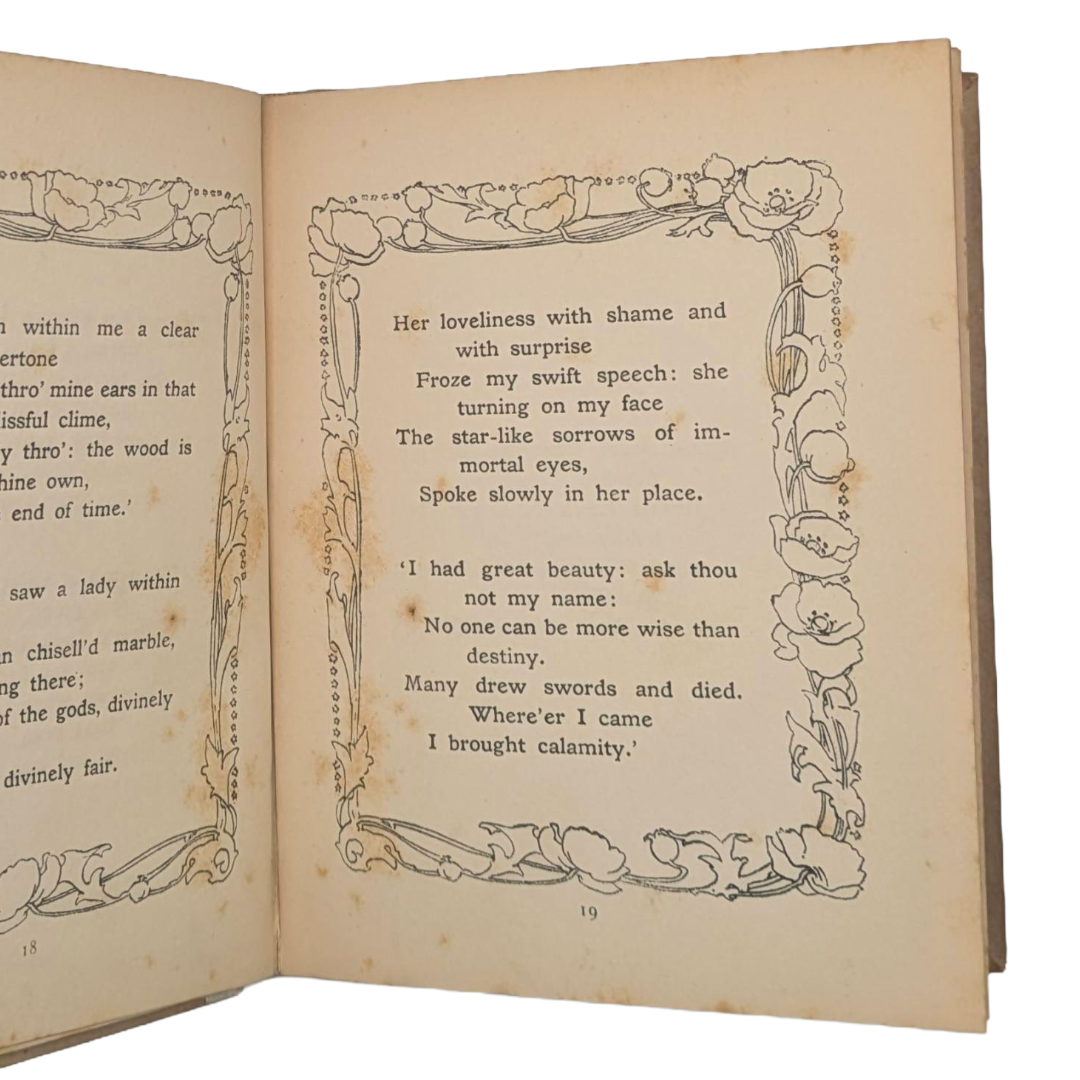 within me a clear
thro' mine ears in that
clime,
thro': the wood is
own,
end of time.'
saw a lady within
chisell'd marble,
there;
the gods, divinely
divinely fair.
18
Her loveliness with shame and
with surprise
Froze my swift speech: she
turning on my face
The star-like sorrows of im-
mortal eyes,
Spoke slowly in her place.
'I had great beauty: ask thou
not my name:
No one can be more wise than
destiny.
Many drew swords and died.
Where'er I came
I brought calamity.'
19